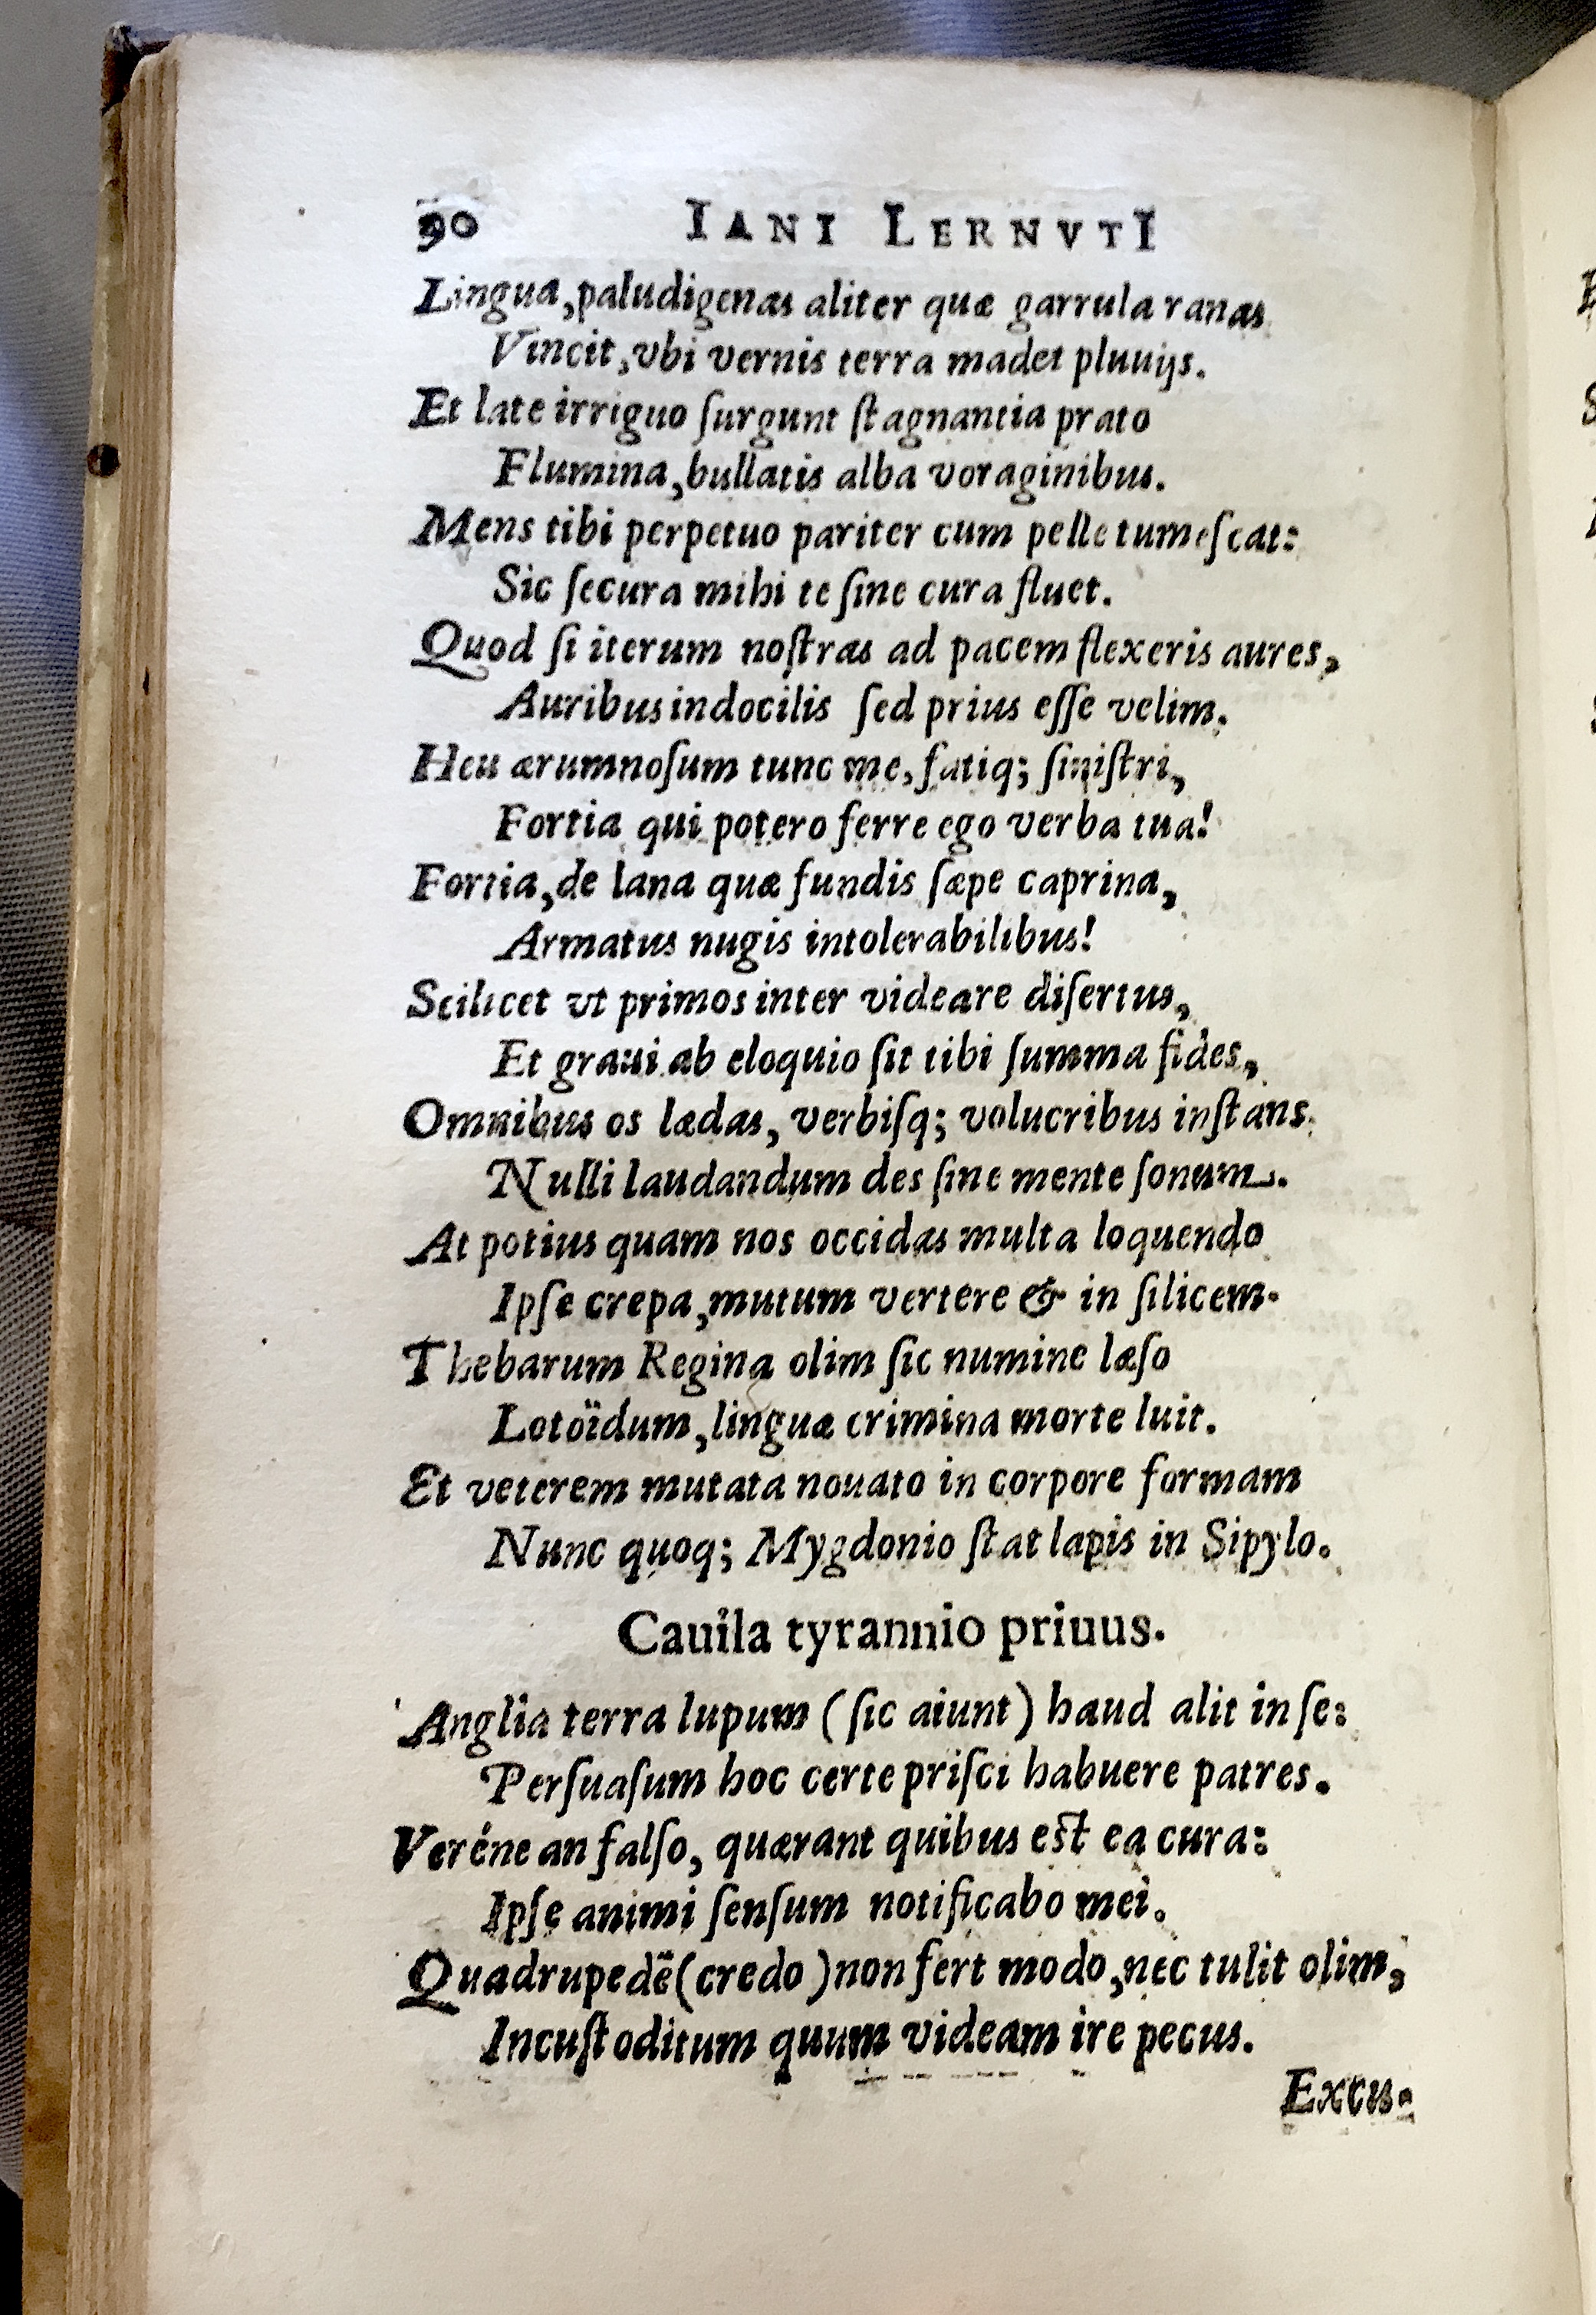 90 IANI LERNVTI
Lingua, paludigenas aliter quæ garrula ranas
Vincit, vbi vernis terra madet pluuijs.
Et late irriguo ſurgunt ſtagnantia prato
Flumina, bullatis alba voraginibus.
Mens tibi perpetuo pariter cum pelle tumeſcat:
Sic ſecura mihi te ſine cura fluet.
Quod ſi iterum noſtras ad pacem flexeris aures,
Auribus indocilis ſed prius eſſe velim.
Heu ærumnoſum tunc me, fatiq; ſiniſtri,
Fortia qui potero ferre ego verba tua!
Fortia, de lana quæ fundis ſæpe caprina,
Armatus nugis intolerabilibus!
Scilicet vt primos inter videare diſertus,
Et graui ab eloquio ſit tibi ſumma fides,
Omnibus os lædas, verbiſq; volucribus inſtans
Nulli laudandum des ſine mente ſonum.
At potius quam nos occidas multa loquendo
Ipſe crepa, mutum vertere & in ſilicem.
Thebarum Regina olim ſic numine læſo
Lotoïdum, linguæ crimina morte luit.
Et veterem mutata nouato in corpore formam
Nunc quoq; Mygdonio ſtat lapis in Sipylo.
Cauila tyrannio priuus.
Anglia terra lupum (ſic aiunt) haud alit in ſe:
Perſuaſum hoc certe priſci habuere patres.
Veréne an falſo, quærant quibus eſt ea cura:
Ipſe animi ſenſum notificabo mei.
Quadrupedē (credo) non fert modo, nec tulit olim,
Incuſtoditum quum videam ire pecus.
Excu-